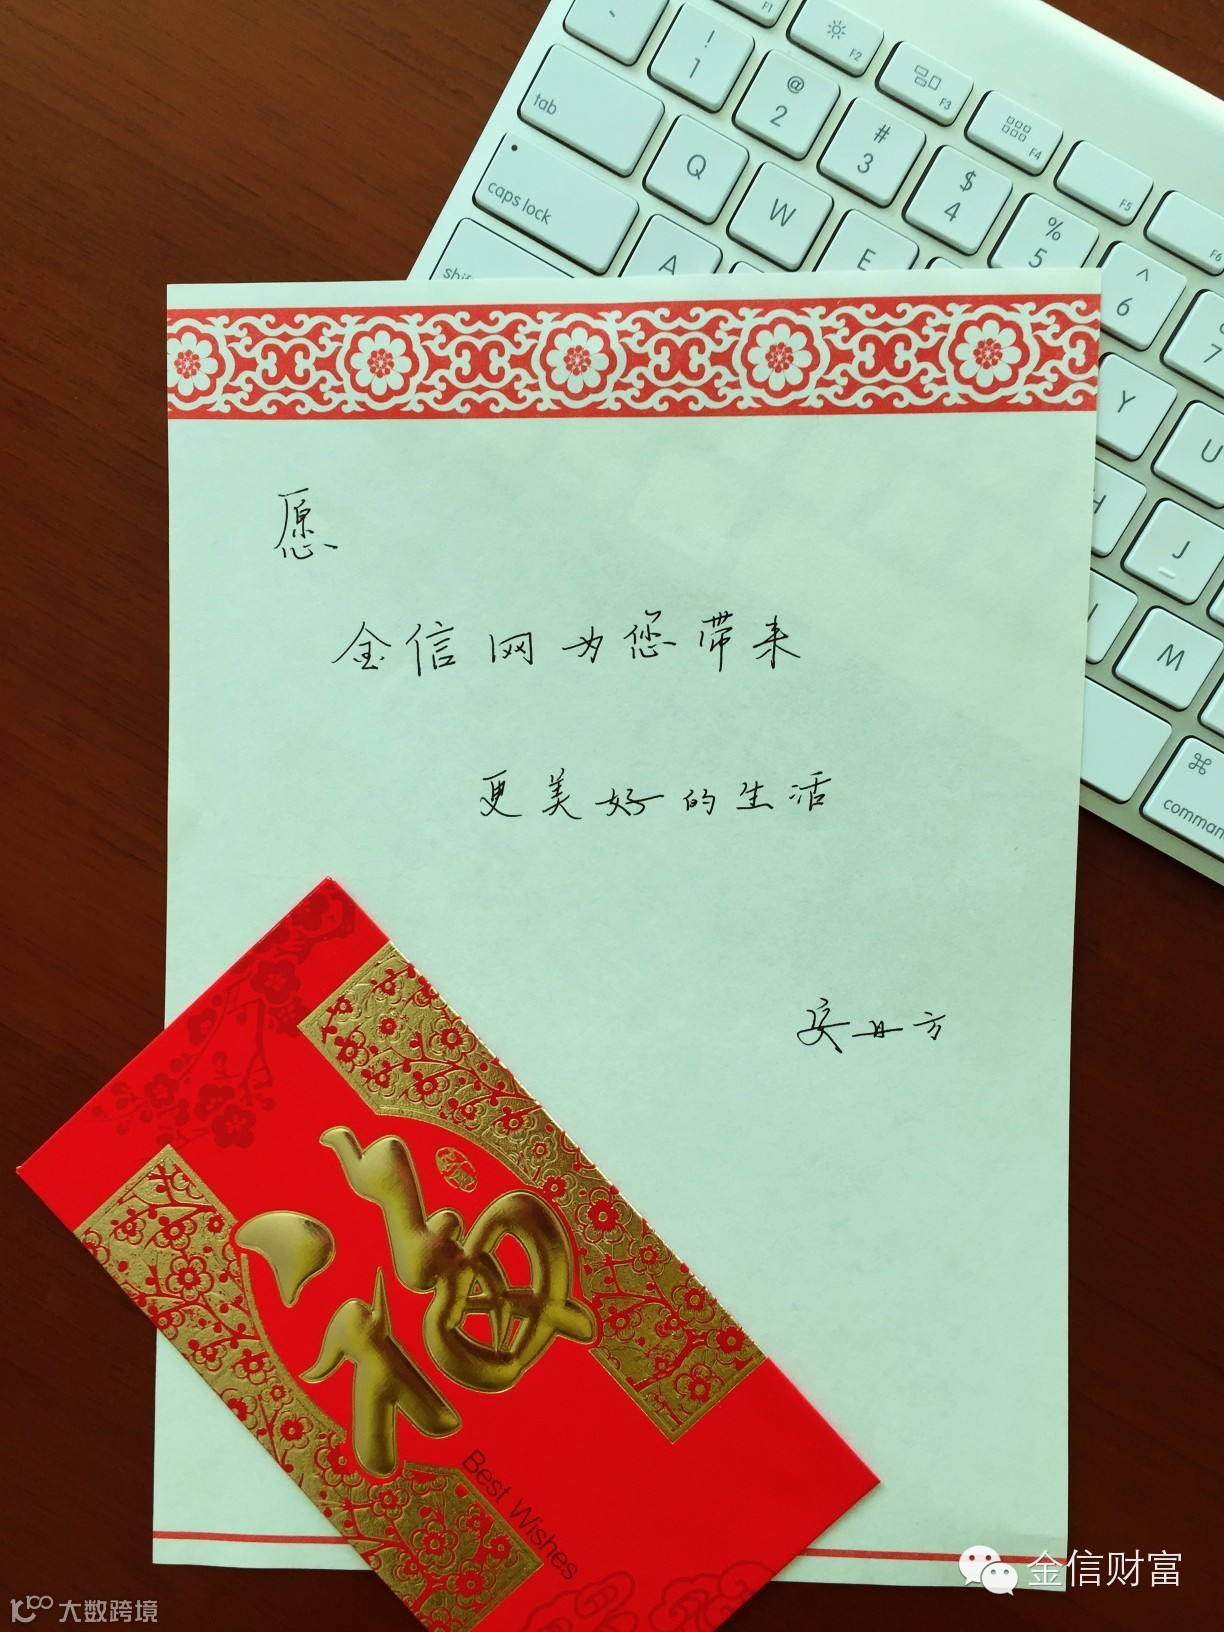 `
!
1
@
2
#
3
$
4
%
5
^
6
7
F1
F2
F3
F4
F5
F6
tab
Q
W
E
Y
U
caps lock
A
H
J
M
command
愿
金信网为您带来
更美好的生活
福
Best Wishes
金信财富
大数跨境